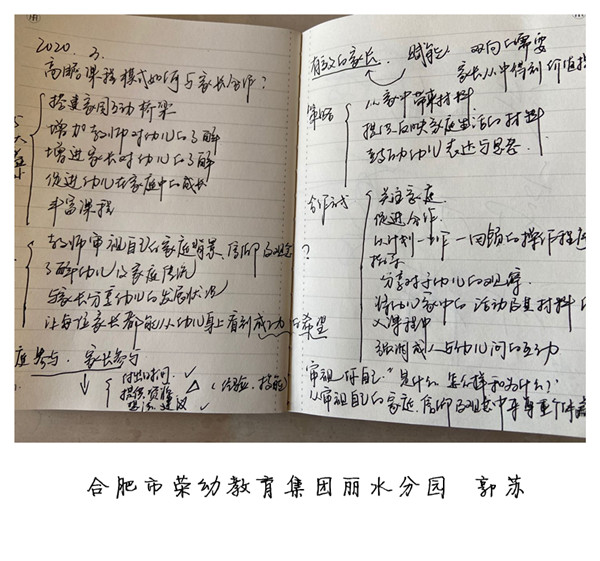 2020. 3.
高瞻课程模式如何与家长合作?
搭建家园互动桥梁
增加教师对幼儿的了解
增进家长对幼儿的了解
促进幼儿在家庭中的成长
丰富课程
教师审视自己的家庭背景、信仰及观念
了解幼儿及家庭情况
与家长分享幼儿的发展状况
让每位家长都能从幼儿身上看到成功与希望
庭参与、家长参与
付出时间 ✓
提供资源 △ (经验、技能)
建议 ✓
有效的家长 赋能 双向的需要
家长从中得到价值
策略
从家中带来材料
提供反映家庭生活的材料
幼儿表述与思考
合作方式
关注家庭
促进合作
以计划—工作—回顾的操作程序
分享对于幼儿的观察
将幼儿家中的活动及其材料
入课程中
强调成人与幼儿间的互动
审视"自己"是什么 怎么样和为什么?
从审视自己的家庭、信仰及观念中尊重个体
合肥市荣幼教育集团丽水分园 郭苏